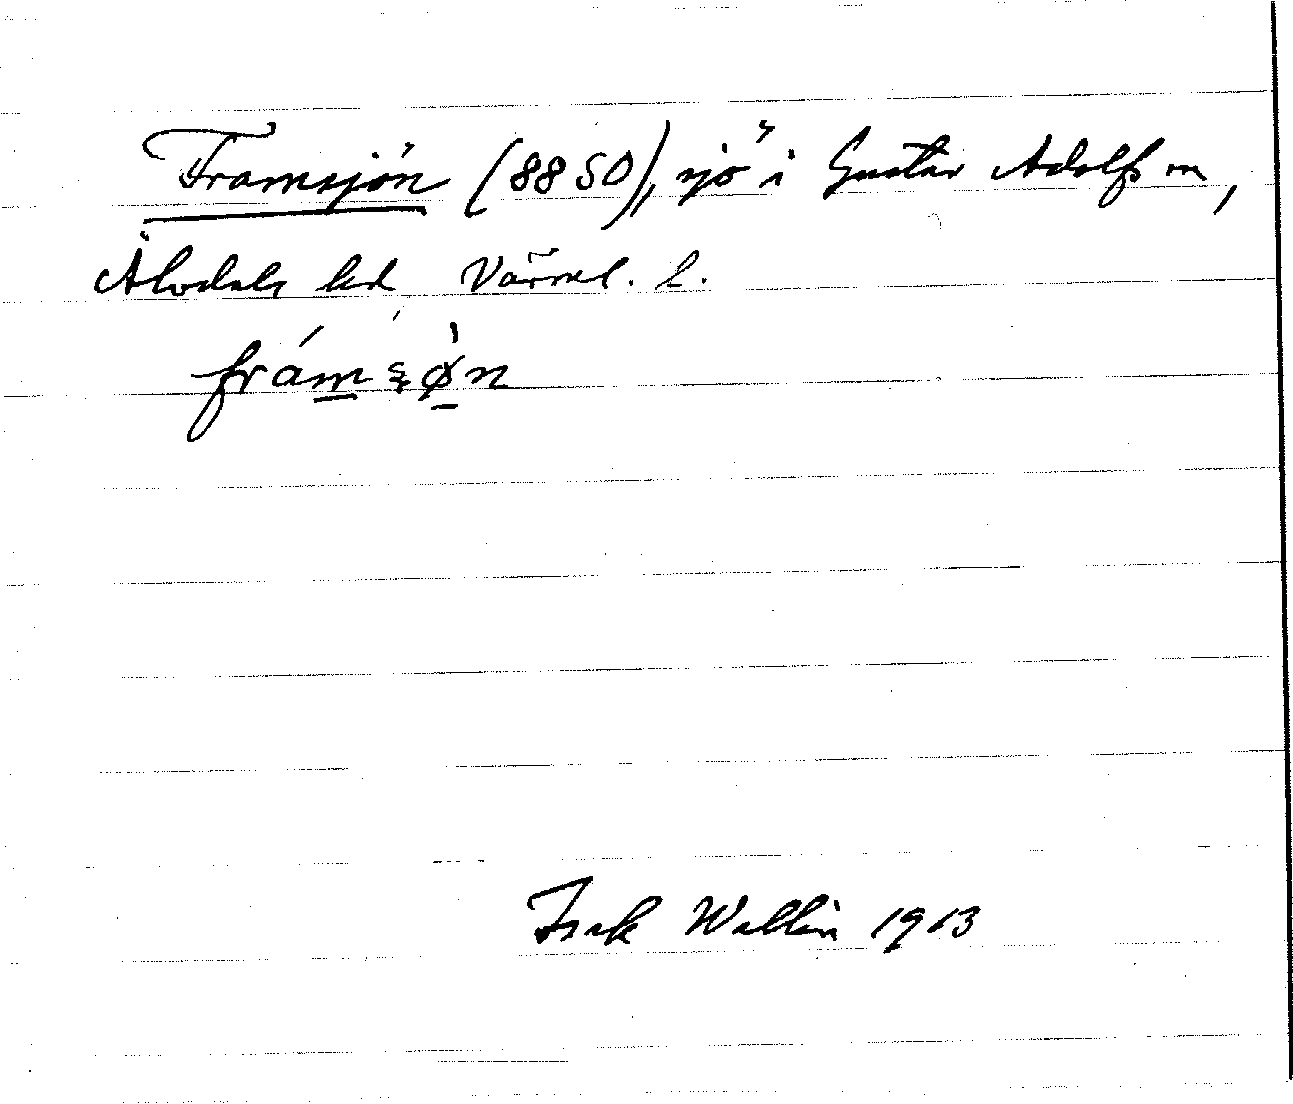 Framsjön (8850), sjö i Gustav Adolfs sn,
Älvdals hd Värml. l.
Isak Wallin 1913